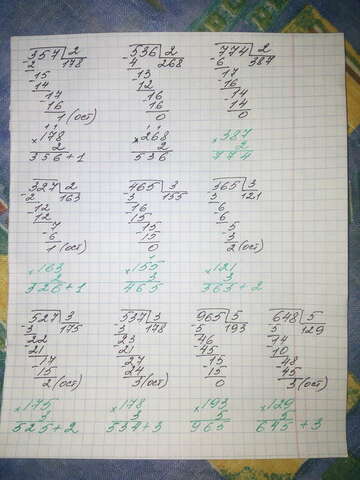 357|2
-2 178
-15
14
-17
-16
1(ост)
×178
2
356+1
536|2
-4 268
-13
12
-16
-16
0
×268
2
536
774|2
-6 387
-17
-16
-14
-14
0
×387
2
774
327|2
-2 163
-12
12
-7
6
1(ост)
×163
2
326+1
465|3
-3 155
-16
15
-15
15
0
×155
3
465
365|3
-3 121
-6
6
-5
3
2(ост)
×121
3
363+2
527|3
-3 175
-22
21
-17
15
2(ост)
×175
3
525+2
537|3
-3 178
-23
21
-27
24
3(ост)
×178
3
534+3
965|5
-5 193
-46
45
-15
15
0
×193
5
965
648|5
-5 129
-14
10
-48
45
3(ост)
×129
5
645+3